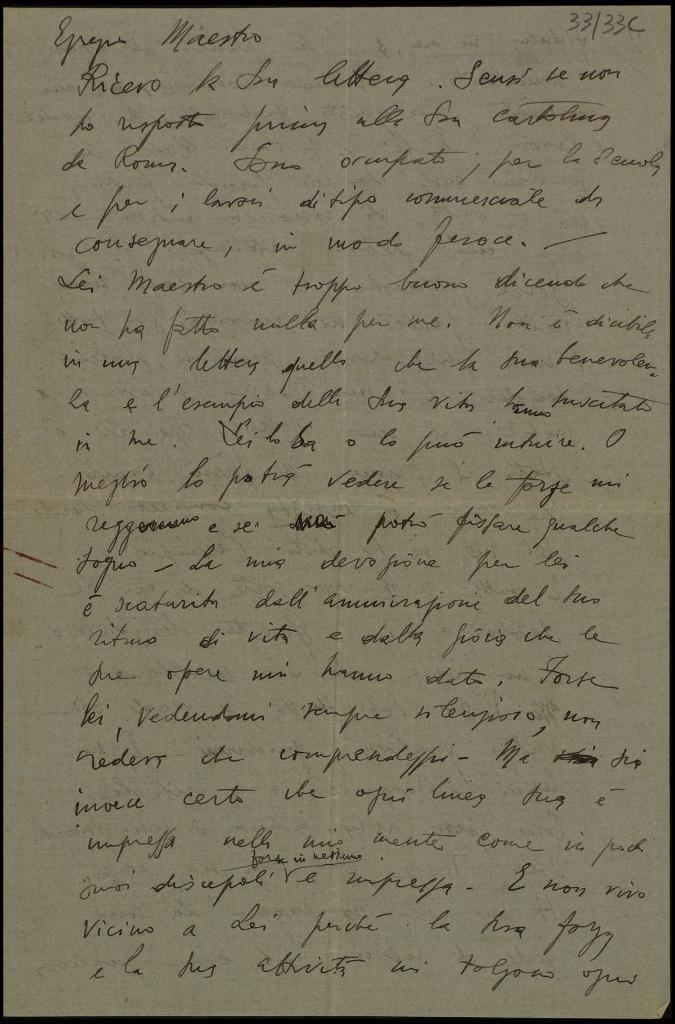 33/33C
Egregio Maestro
Ricevo la Sua lettera. Scusi se non
ho risposto prima alla Sua cartolina
da Roma. Sono occupato, per la Scuola
e per i lavori di tipo commerciale da
consegnare, in modo feroce. —
Lei Maestro è troppo buono dicendo che
non ha fatto nulla per me. Non è dicibile
in una lettera quello che la Sua benevolen-
za e l'esempio della Sua vita hanno suscitato
in me. Lei lo sa o lo può intuire. O
meglio lo potrà vedere se le forze mi
reggeranno e se potrò fissare qualche
sogno — La mia devozione per Lei
è scaturita dall'ammirazione del Suo
ritmo di vita e dalla gioia che le
Sue opere mi hanno dato. Forse
Lei, vedendomi sempre silenzioso, non
credeva che comprendessi — Ma sia
invece certo che ogni linea Sua è
impressa nella mia mente come in pochi
forse in nessuno
suoi discepoli è impressa — E non vivo
vicino a Lei perchè la Sua forza
e la Sua attività mi tolgono ogni